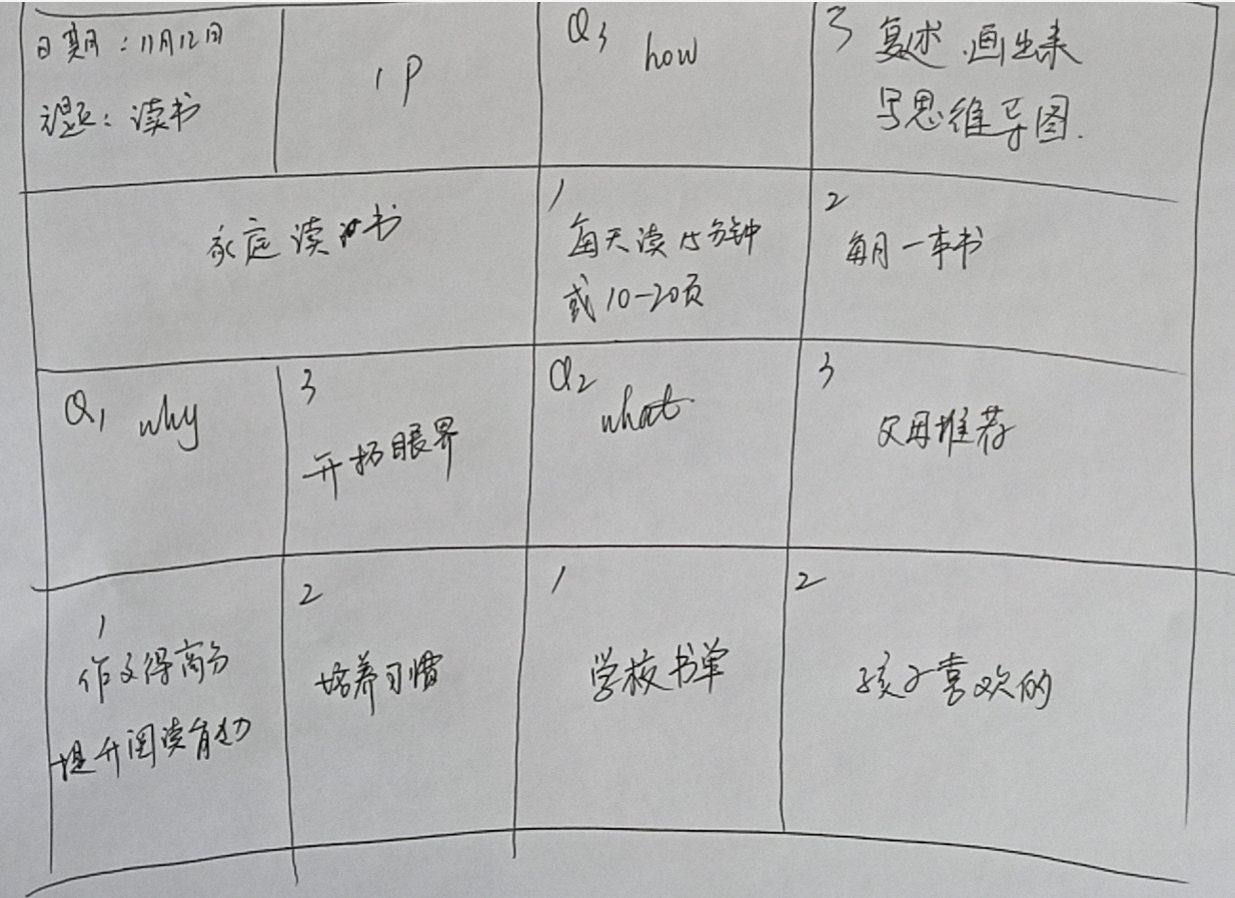 日期：11月12日
课题：读书
1P
Q3 how
3 复述.画出来
写思维导图.
家庭读书
1
每天读15分钟
或10-20页
2
每月一本书
Q1 why
3
开拓眼界
Q2
what
3
父母推荐
1
作文得高分
提升阅读能力
2
培养习惯
1
学校书单
2
孩子喜欢的